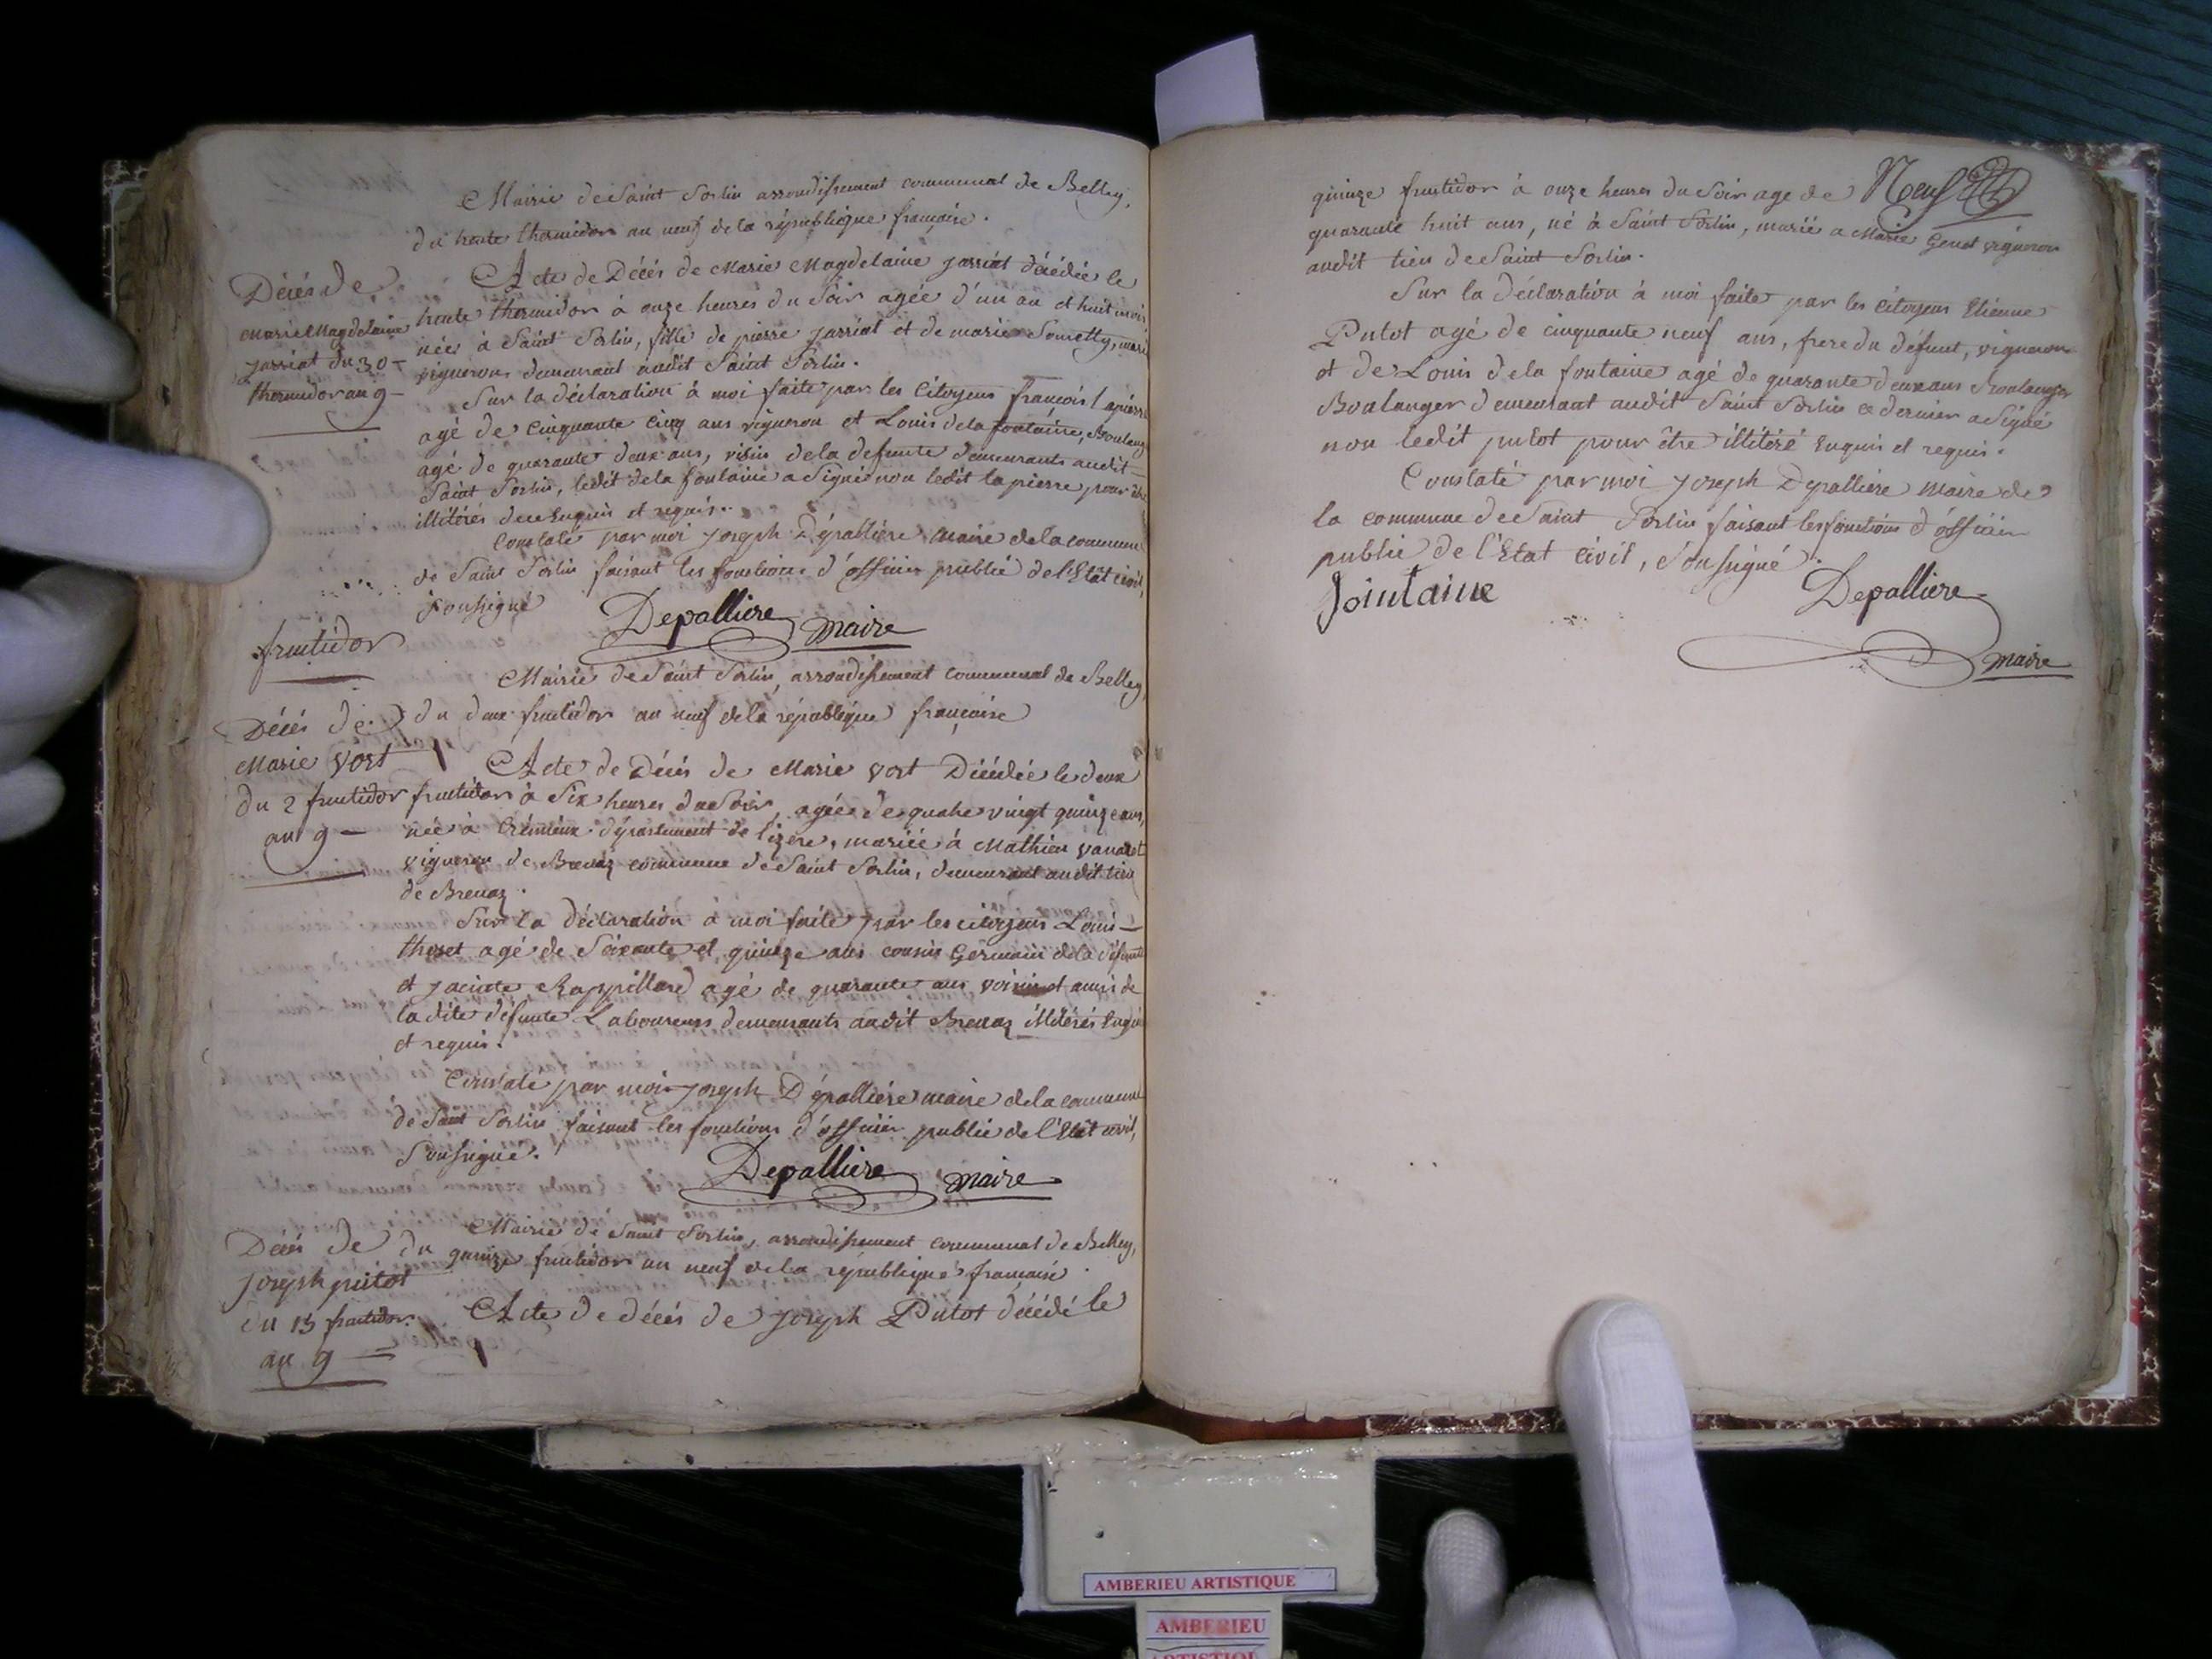 Mairie de Saint Sorlin arrondissement communal de Belley,
du trente thermidor an neuf de la république française.
Décés de
Marie Magdelaine
jarriat du 30
thermidor an 9
Acte de Décés de Marie Magdelaine jarriat décédée le
trente thermidor à onze heures du Soir agée d'un an et huit mois
née à Saint Sorlin, fille de pierre jarriat et de marie
vignerons demeurant audit Saint Sorlin.
Sur la déclaration à moi faite par les Citoyens françois lapierre
agé de Cinquante Cinq ans vigneron et Louis dela fontaine, Boulang
agé de quarante deux ans, visin dela defunte demeurants audit
Saint Sorlin, ledit dela fontaine a Signé non ledit lapierre pour être
illitérés de ce Enquis et requis.
Constaté par moi joseph Dépalliére maire de la commune
de Saint Sorlin faisant les fonctions d'officier public de l'Etat civil,
soussigné
Depalliere maire
fructidor
Mairie de Saint Sorlin, arrondissement communal de Belley,
du deux fructidor an neuf de la république française
Décés de
Marie vort
du 2 fructidor
an 9
Acte de Décés de Marie vort Décédée le deux
fructidor à Six heures du Soir, agée de quatre vingt quinze ans,
née à Crémieux département de l'izere, mariée à Mathieu vanaret
vigneron de Brenaz commune de Saint Sorlin, demeurant audit lieu
de Brenaz.
Sur la déclaration à moi faite par les citoyens Louis
thoset agé de Soixante et quinze ans cousin Germain de la défunte
et jacinte Rappillard agé de quarante ans voisin et amis de
la dite défunte Laboureurs demeurants audit Brenaz illitérés Enquis
et requis.
Constaté par moi joseph Dépalliére maire de la commune
de Saint Sorlin faisant les fonctions d'officier public de l'Etat civil,
Soussigné.
Depalliere maire
Mairie de Saint Sorlin, arrondissement communal de Belley,
du quinze fructidor an neuf de la république française.
Décés de
joseph putot
du 15 fructidor
an 9
Acte de décés de joseph Putot décédé le
Neuf
quinze fructidor à onze heures du Soir age de
quarante huit ans, né à Saint Sorlin, marié a Marie Genot vigneron
audit lieu de Saint Sorlin.
Sur la déclaration à moi faite par les Citoyens Etienne
Putot agé de cinquante neuf ans, frere du défunt, vigneron
et de Louis dela fontaine agé de quarante deux ans Boulanger
Boulanger demeurant audit Saint Sorlin ce dernier a Signé
non ledit putot pour être illitéré Enquis et requis.
Constaté par moi joseph Dépalliére Maire de
la commune de Saint Sorlin faisant les fonctions d'officier
public de l'Etat civil, Soussigné.
fointaine
Depalliere
maire
AMBERIEU ARTISTIQUE
AMBERIEU
ARTISTIQUE